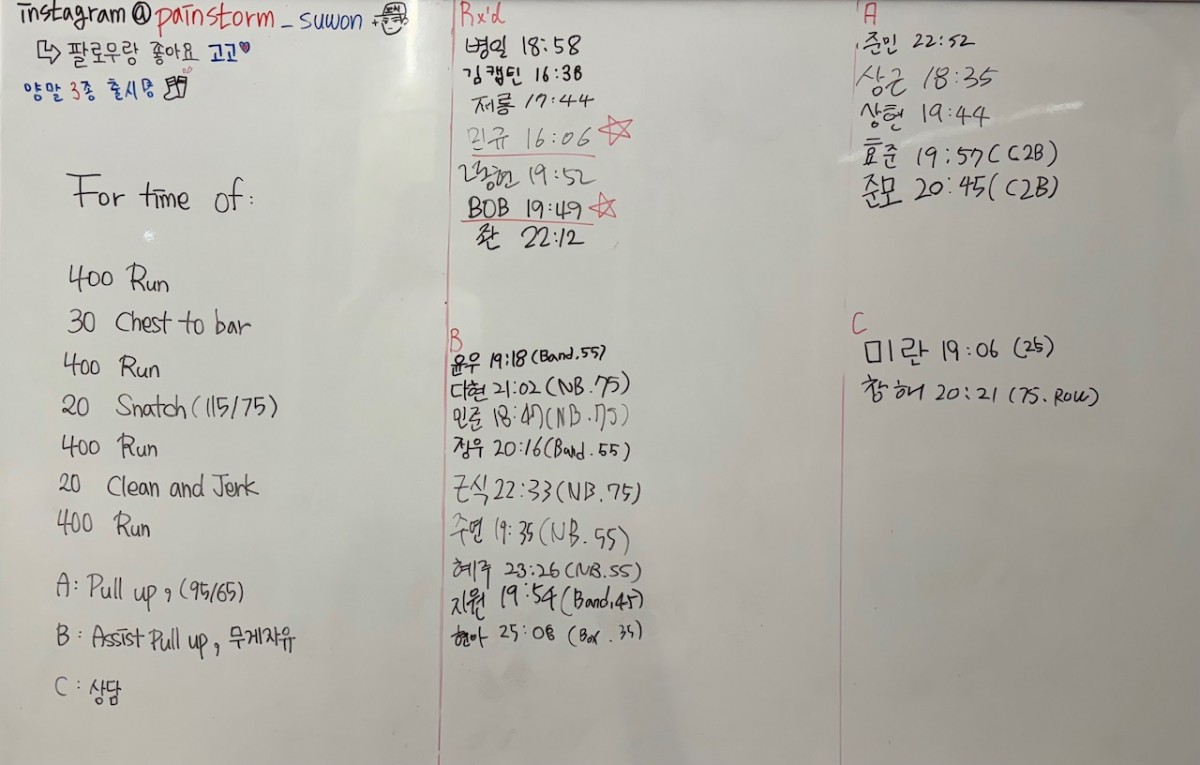 instagram @painstorm_suwon +
팔로우랑 좋아요 고고
양말 3종 출시중
For time of:
400 Run
30 Chest to bar
400 Run
20 Snatch (115/75)
400 Run
20 Clean and Jerk
400 Run
A: Pull up, (95/65)
B: Assist Pull up, 무게자유
C: 상담
Rx'd
병일 18:58
김캡틴 16:38
재룡 17:44
민규 16:06
19:52
BOB 19:49
좐 22:12
B
윤우 19:18 (Band.55)
다현 21:02 (NB.75)
민준 18:47 (NB.75)
장우 20:16 (Band.55)
근식 22:33 (NB.75)
주연 19:35 (NB.55)
혜주 23:26 (NB.55)
지원 19:54 (Band.45)
현아 25:08 (Box.35)
A
준민 22:52
상근 18:35
상현 19:44
효준 19:57 (C2B)
준모 20:45 (C2B)
C
미란 19:06 (25)
창해 20:21 (75.Row)